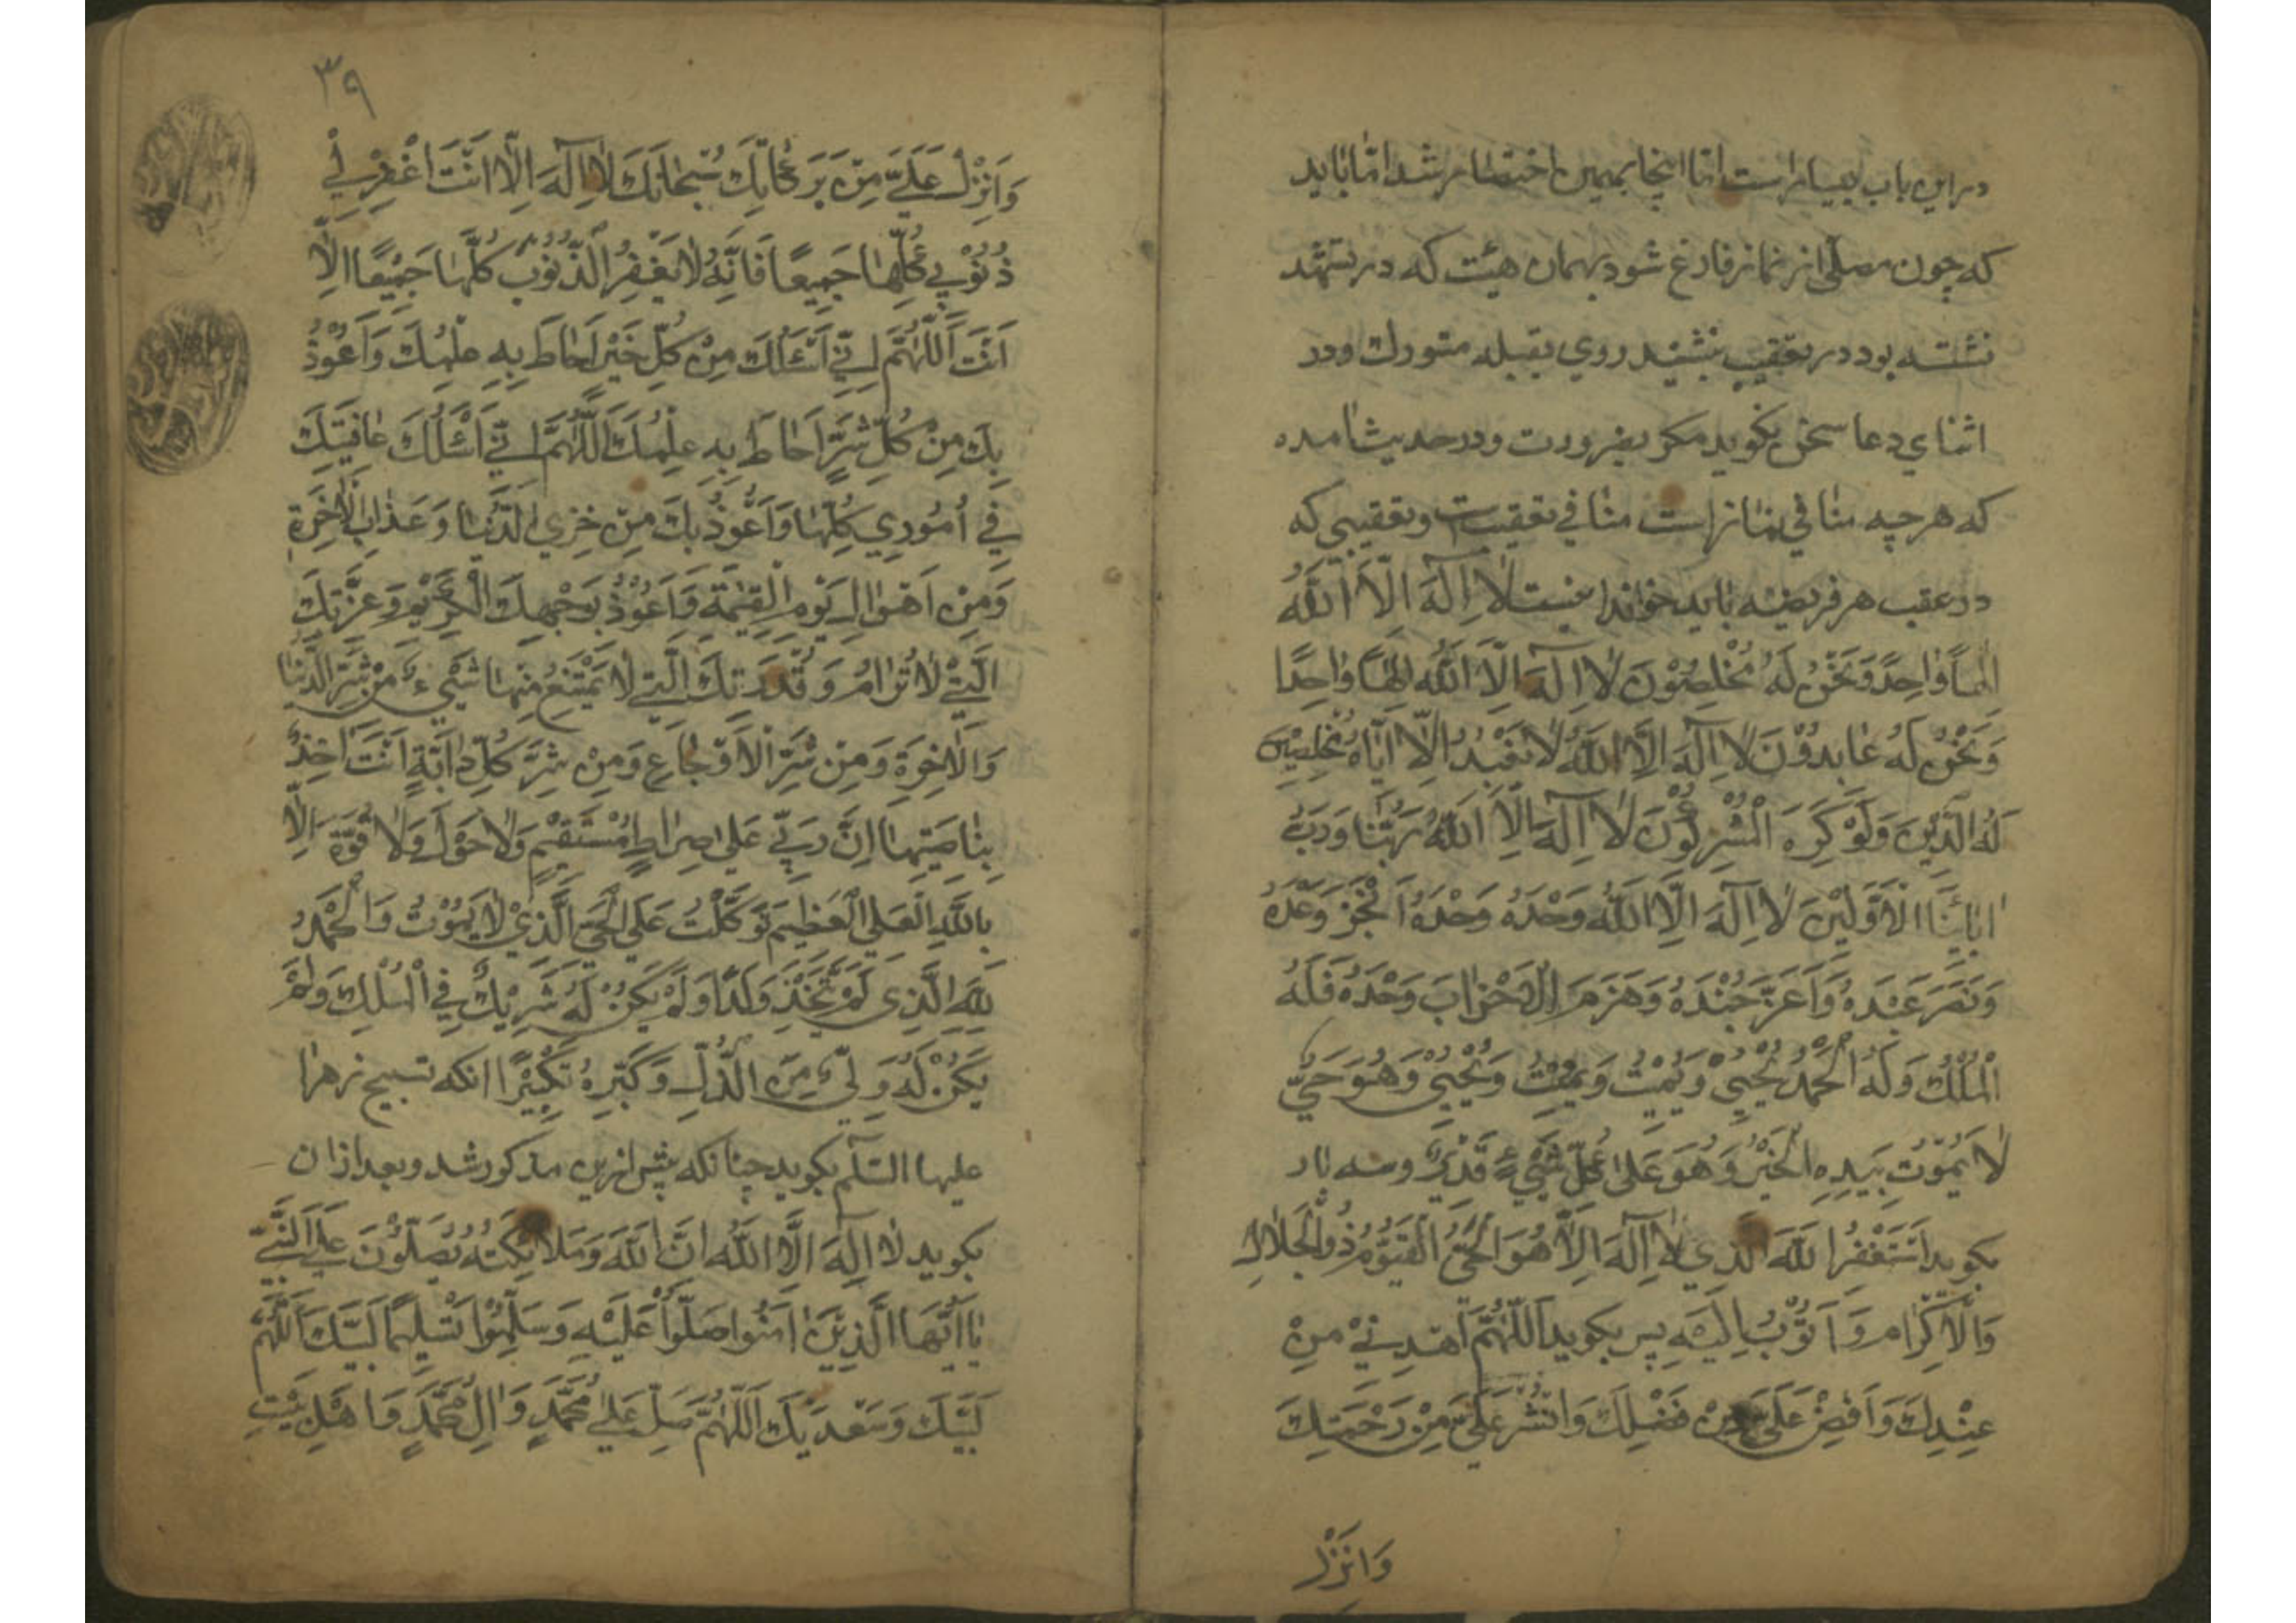 در این باب بسیار است اما اینجا بهمین اختصار شد اما باید
که چون مصلی از نماز فارغ شود بهمان هیئت که در تشهد
نشسته بود در تعقیب بنشیند روی بقبله متورك ودر
اثنای دعا سخن نکوید مکر بضرورت ودر حدیث امده
که هرچه منافی نماز است منافی تعقیبست وتعقیبی که
در عقب هر فریضه باید خواند اینست لَا اِلٰهَ اِلَّا اللّٰهُ
اِلٰهًا وَاحِدًا وَنَحْنُ لَهُ مُخْلِصُوْنَ لَا اِلٰهَ اِلَّا اللّٰهُ اِلٰهًا وَاحِدًا
وَنَحْنُ لَهُ عَابِدُوْنَ لَا اِلٰهَ اِلَّا اللّٰهُ لَا نَعْبُدُ اِلَّا اِيَّاهُ مُخْلِصِيْنَ
لَهُ الدِّيْنَ وَلَوْ كَرِهَ الْمُشْرِكُوْنَ لَا اِلٰهَ اِلَّا اللّٰهُ رَبُّنَا وَرَبُّ
اٰبَائِنَا الْاَوَّلِيْنَ لَا اِلٰهَ اِلَّا اللّٰهُ وَحْدَهُ وَحْدَهُ اَنْجَزَ وَعْدَهُ
وَنَصَرَ عَبْدَهُ وَاَعَزَّ جُنْدَهُ وَهَزَمَ الْاَحْزَابَ وَحْدَهُ فَلَهُ
الْمُلْكُ وَلَهُ الْحَمْدُ يُحْيِيْ وَيُمِيْتُ وَيُمِيْتُ وَيُحْيِيْ وَهُوَ حَيٌّ
لَا يَمُوْتُ بِيَدِهِ الْخَيْرُ وَهُوَ عَلٰى كُلِّ شَيْءٍ قَدِيْرٌ وسه بار
بکوید اَسْتَغْفِرُ اللّٰهَ الَّذِي لَا اِلٰهَ اِلَّا هُوَ الْحَيُّ الْقَيُّوْمُ ذُو الْجَلَالِ
وَالْاِكْرَامِ وَاَتُوْبُ اِلَيْهِ پس بکوید اَللّٰهُمَّ اهْدِنِيْ مِنْ
عِنْدِكَ وَاَفِضْ عَلَيَّ مِنْ فَضْلِكَ وَانْشُرْ عَلَيَّ مِنْ رَحْمَتِكَ
وَاَنْزِلْ
۳۹
وَاَنْزِلْ عَلَيَّ مِنْ بَرَكَاتِكَ سُبْحَانَكَ لَا اِلٰهَ اِلَّا اَنْتَ اغْفِرْ لِيْ
ذُنُوْبِيْ كُلَّهَا جَمِيعًا فَاِنَّهُ لَا يَغْفِرُ الذُّنُوْبَ كُلَّهَا جَمِيْعًا اِلَّا
اَنْتَ اَللّٰهُمَّ اِنِّيْ اَسْئَلُكَ مِنْ كُلِّ خَيْرٍ اَحَاطَ بِهِ عِلْمُكَ وَاَعُوْذُ
بِكَ مِنْ كُلِّ شَرٍّ اَحَاطَ بِهِ عِلْمُكَ اَللّٰهُمَّ اِنِّيْ اَسْئَلُكَ عَافِيَتَكَ
فِي اُمُوْرِي كُلِّهَا وَاَعُوْذُ بِكَ مِنْ خِزْيِ الدُّنْيَا وَعَذَابِ الْاٰخِرَةِ
وَمِنْ اَهْوَالِ يَوْمِ الْقِيٰمَةِ وَاَعُوْذُ بِوَجْهِكَ الْكَرِيْمِ وَعِزَّتِكَ
الَّتِيْ لَا تُرَامُ وَقُدْرَتِكَ الَّتِيْ لَا يَمْتَنِعُ مِنْهَا شَيْءٌ مِنْ شَرِّ الدُّنْيَا
وَالْاٰخِرَةِ وَمِنْ شَرِّ الْاَوْجَاعِ وَمِنْ شَرِّ كُلِّ دَابَّةٍ اَنْتَ اٰخِذٌ
بِنَاصِيَتِهَا اِنَّ رَبِّيْ عَلٰى صِرَاطٍ مُسْتَقِيْمٍ وَلَا حَوْلَ وَلَا قُوَّةَ اِلَّا
بِاللّٰهِ الْعَلِيِّ الْعَظِيْمِ تَوَكَّلْتُ عَلَى الْحَيِّ الَّذِيْ لَا يَمُوْتُ وَالْحَمْدُ
لِلّٰهِ الَّذِي لَمْ يَتَّخِذْ وَلَدًا وَلَمْ يَكُنْ لَهُ شَرِيْكٌ فِي الْمُلْكِ وَلَمْ
يَكُنْ لَهُ وَلِيٌّ مِنَ الذُّلِّ وَكَبِّرْهُ تَكْبِيْرًا انکه تسبیح زهرا
علیها السلام بکوید چنانکه پیش ازین مذکور شد وبعد ازان
بکوید لَا اِلٰهَ اِلَّا اللّٰهُ اِنَّ اللّٰهَ وَمَلَائِكَتَهُ يُصَلُّوْنَ عَلَى النَّبِيِّ
يَا اَيُّهَا الَّذِيْنَ اٰمَنُوا صَلُّوا عَلَيْهِ وَسَلِّمُوْا تَسْلِيْمًا لَبَّيْكَ اَللّٰهُمَّ
لَبَّيْكَ وَسَعْدَيْكَ اَللّٰهُمَّ صَلِّ عَلٰى مُحَمَّدٍ وَاٰلِ مُحَمَّدٍ وَاَهْلِ بَيْتِ